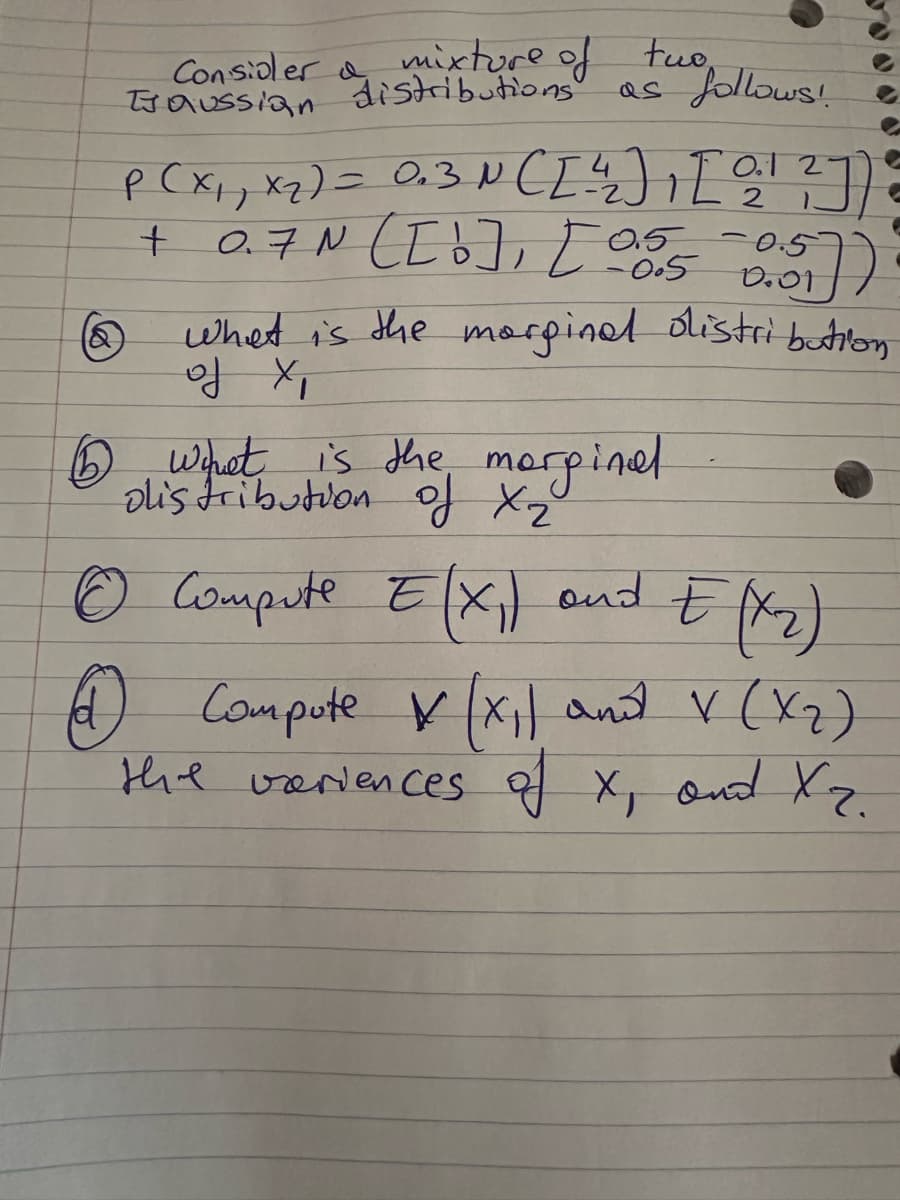 Consider a mixture of two
Gaussian distributions as follows!
p(x₁, x₂) = 0.3 N([4 -2], [0.1 2 2 1])
+ 0.7 N([1 0], [0.5 -0.5 -0.5 0.01])
(a) what is the marginal distribution
of x₁
(b) what is the marginal
distribution of x₂
(c) Compute E(x₁) and E(x₂)
(d) Compute V(x₁) and V(x₂)
the variences of x₁ and x₂.